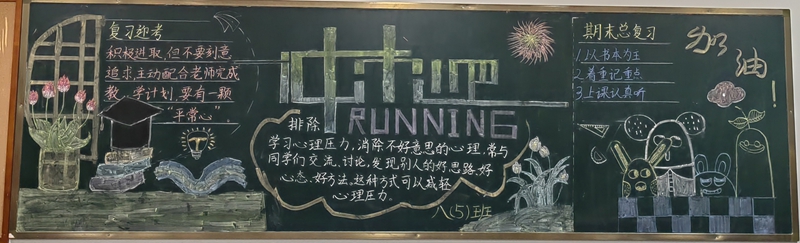 复习迎考
积极进取,但不要刻意
追求主动配合老师完成
教、学计划,要有一颗
“平常心”。
冲冲吧
RUNNING
排除
学习心理压力,消除不好意思的心理,常与
同学们交流,讨论,发现别人的好思路,好
心态,好方法,这种方式可以减轻
心理压力。
八(5)班
期末总复习
1.以书本为主
2.着重记重点
3.上课认真听
加油!